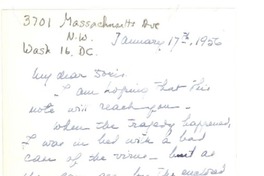 3701 Massachusetts Ave
N.W.
Wash 16, D.C.
January 17th, 1956
My dear
I am hoping that this
note will reach you.
When the tragedy happened,
I was in bed with a bad
case of the virus - but as